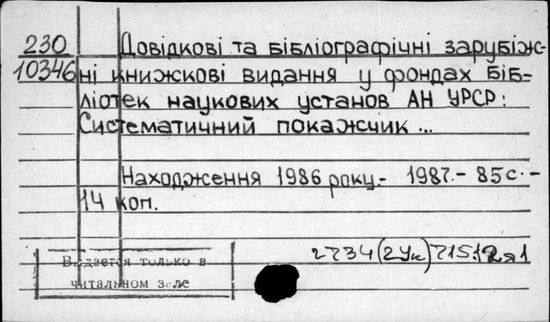 230
10346
Довідкові та бібліографічні зарубіж-
ні книжкові видання у фондах біб-
ліотек наукових установ АН УРСР:
Систематичний покажчик ...
Находження 1986 року.- 1987.- 85с.-
14 коп.
2734(2Ук)715.12я1
Выдается только в
читальном зале